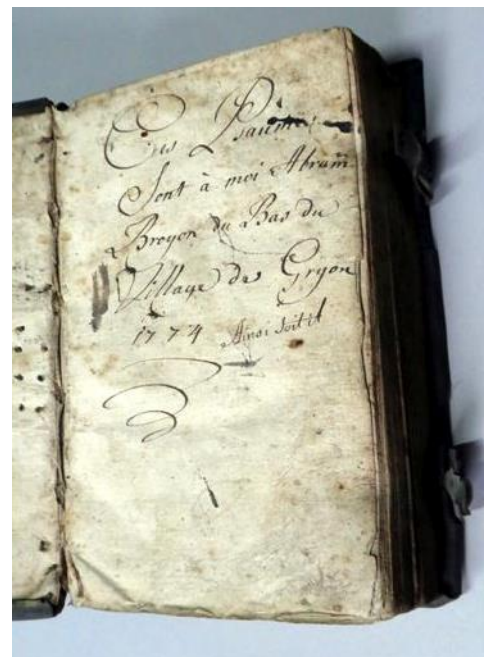 Ces Psaumes
Sont à moi Abram
Broyon du Bas du
Village de Gryon
1774 Ainsi soit il